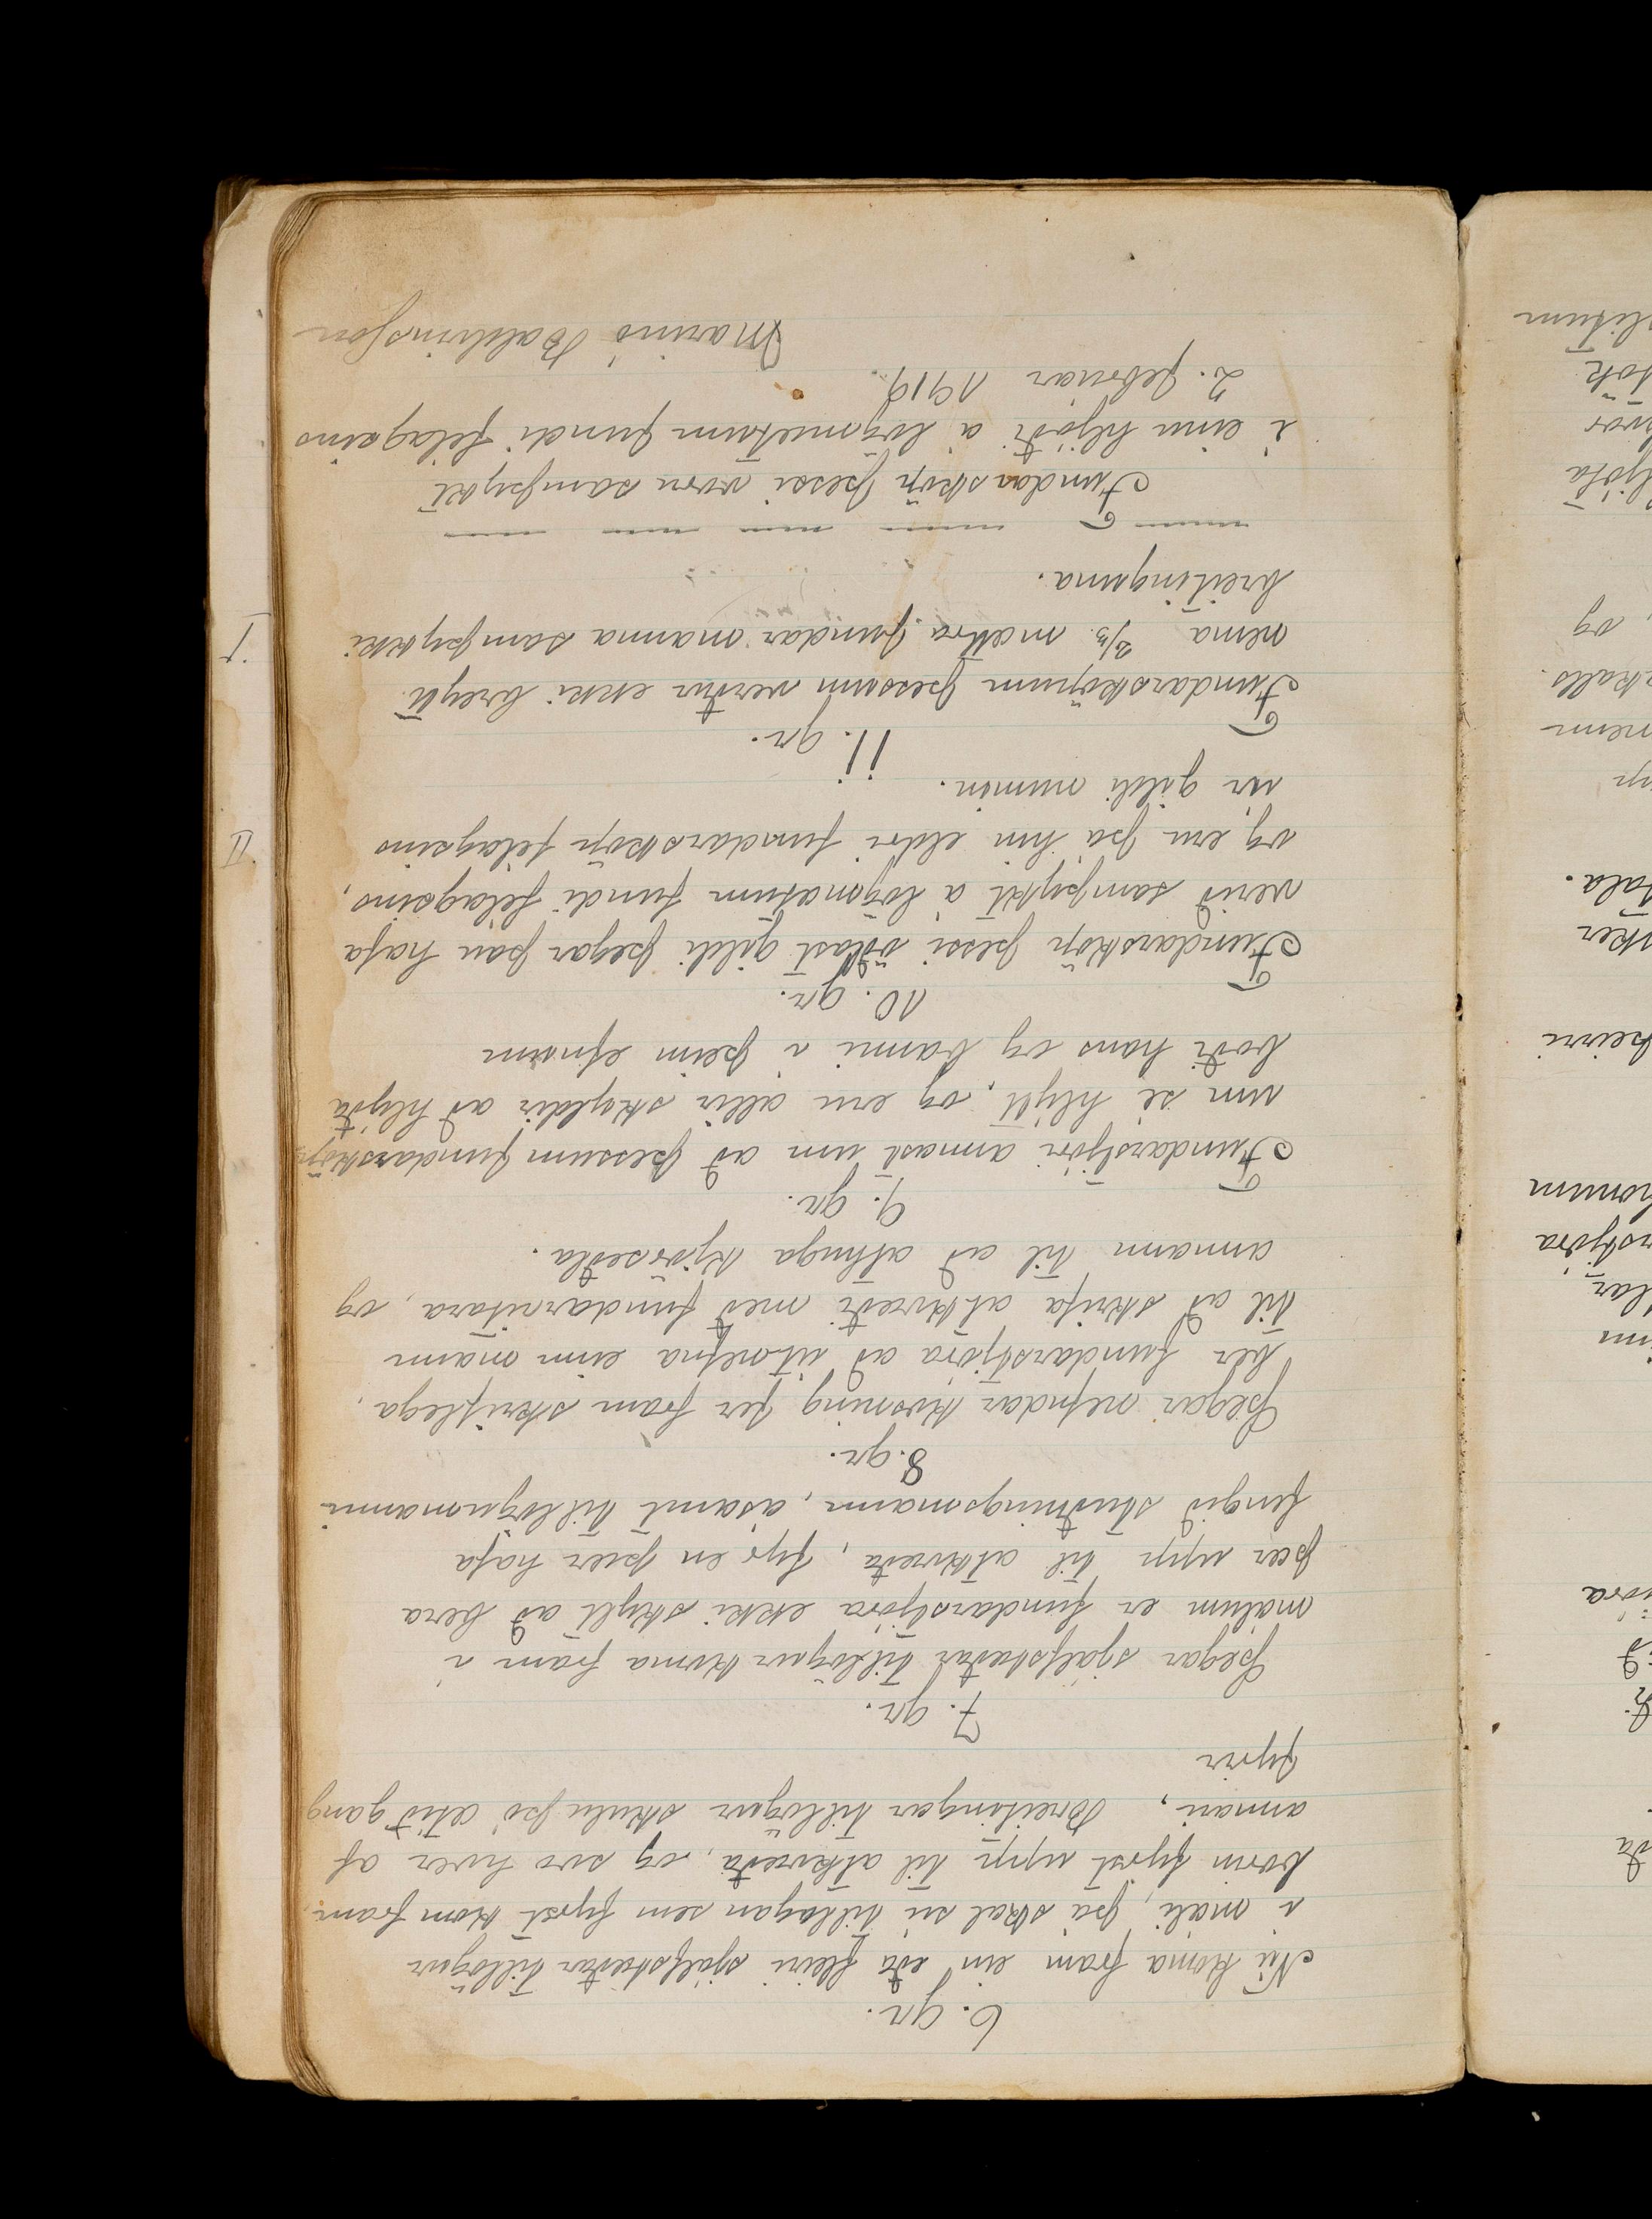 6. gr.
Nú koma fram ein eða fleiri sjálfstæðar tillögur
í máli, þá skal sú tillagan sem fyrst kom fram,
borin fyrst upp til atkvæða, og svo hver af
annari, Breitingar tillögur skulu þó ætið gang
fyrir
7. gr.
Þegar sjálfstæðar tillögur koma fram í
málum er fundarstjóra ekki skylt að bera
þær upp til atkvæða, fyr en þær hafa
fengið stuðningsmann, ásamt tillögumanni
8. gr.
Þegar nefndar kosning fer fram skriflega,
ber fundarstjóra að útnefna einn mann
til að skrifa atkvæði með fundarritara, og
annann til að athuga kjörseðla.
9. gr.
Fundarstjóri annast um að þessum fundarsköp-
um sé hlýtt, og eru allir skyldir að hlýða
boði hans og banni í þeim efnum
10. gr.
Fundarsköp þessi öðlast gildi þegar þau hafa
verið samþykt á lögmætum fundi félagsins,
og eru þá hin eldri fundarsköp félagsins
úr gildi numin.
11. gr.
Fundarsköpum þessum verður ekki breytt
nema 2/3 mættra fundar manna samþykki
breitinguna.
Fundarsköp þessi voru samþykt
í einu hljóði á lögmætum fundi félagsins
2. febrúar 1919.
Marinó Baldvinsson
I
II